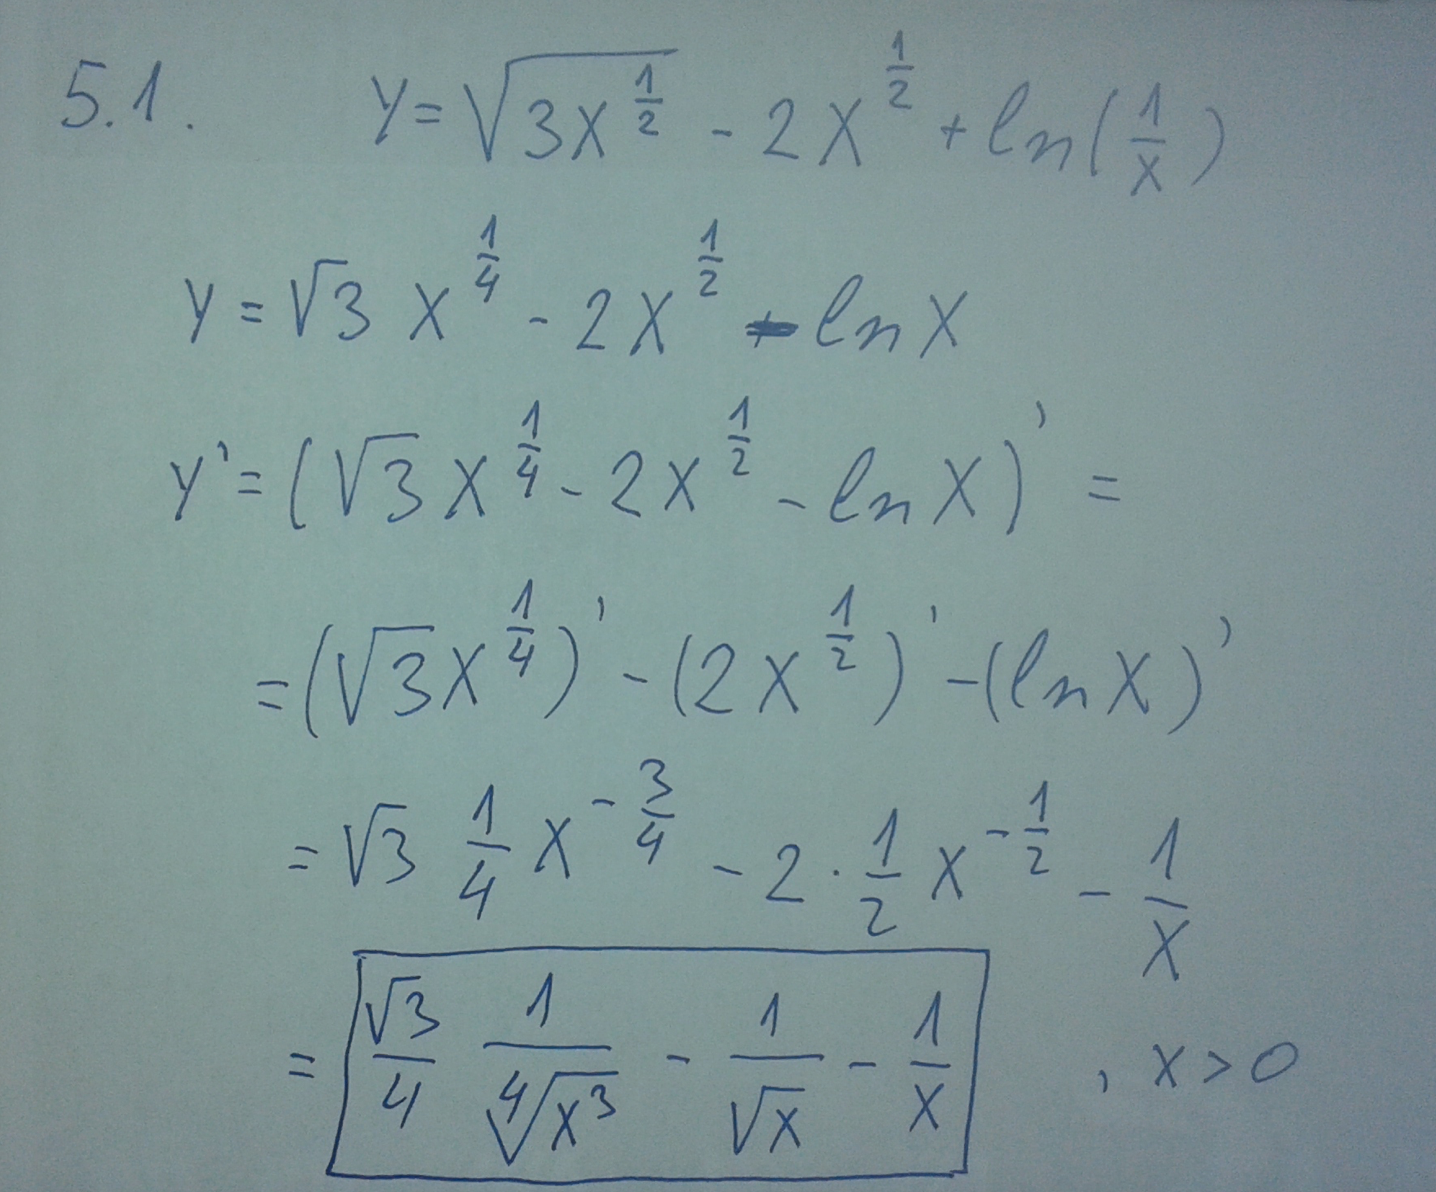 5.1. y = √(3x^(1/2)) - 2x^(1/2) + ln(1/x)
y = √3 x^(1/4) - 2x^(1/2) - ln x
y' = (√3 x^(1/4) - 2x^(1/2) - ln x)' =
= (√3 x^(1/4))' - (2x^(1/2))' - (ln x)'
= √3 1/4 x^(-3/4) - 2 · 1/2 x^(-1/2) - 1/x
= √3/4 1/∜(x³) - 1/√x - 1/x , x > 0